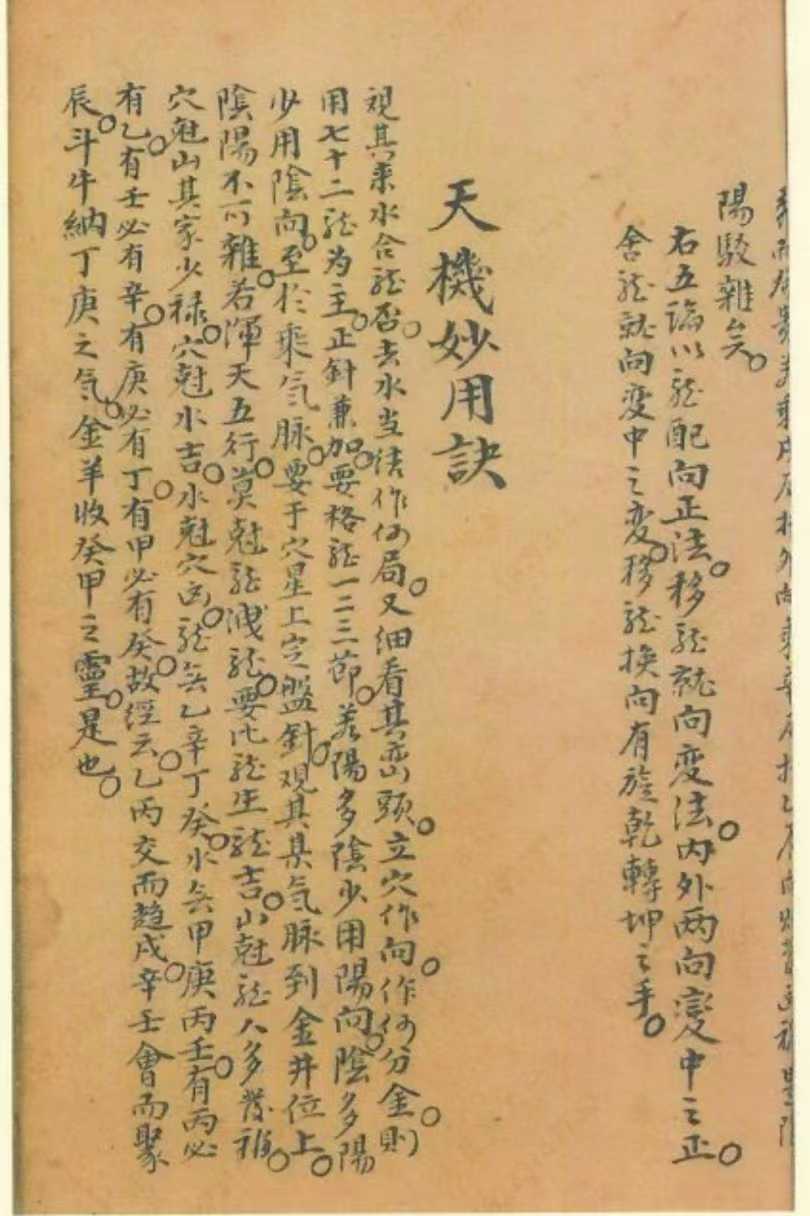 陽駁雜矣。
右五論以龍配向正法。移龍就向变法。内外两向變中之正。
舍龍就向变中之变。移龍换向有旋乾轉坤之手。
天機妙用訣
視其来水合龍否。去水当法作何局。又细看其峦頭。立穴作向。作何分金。則
用七十二龍为主。正針兼加。要格龍一二三節。若陽多陰少用陽向。陰多陽
少用陰向。至於乘气脉。要于穴星上定盤針。观其其气脉到金井位上。
陰陽不可雜。若渾天五行。莫尅龍洩龍。要比龍生龍吉。山尅龍人多發福。
穴尅山其家少禄。穴尅水吉。水尅穴凶。龍無乙辛丁癸。水無甲庚丙壬。有丙必
有乙。有壬必有辛。有庚必有丁。有甲必有癸。故经云。乙丙交而趋戍。辛壬會而聚
辰。斗牛納丁庚之气。金羊收癸甲之靈。是也。